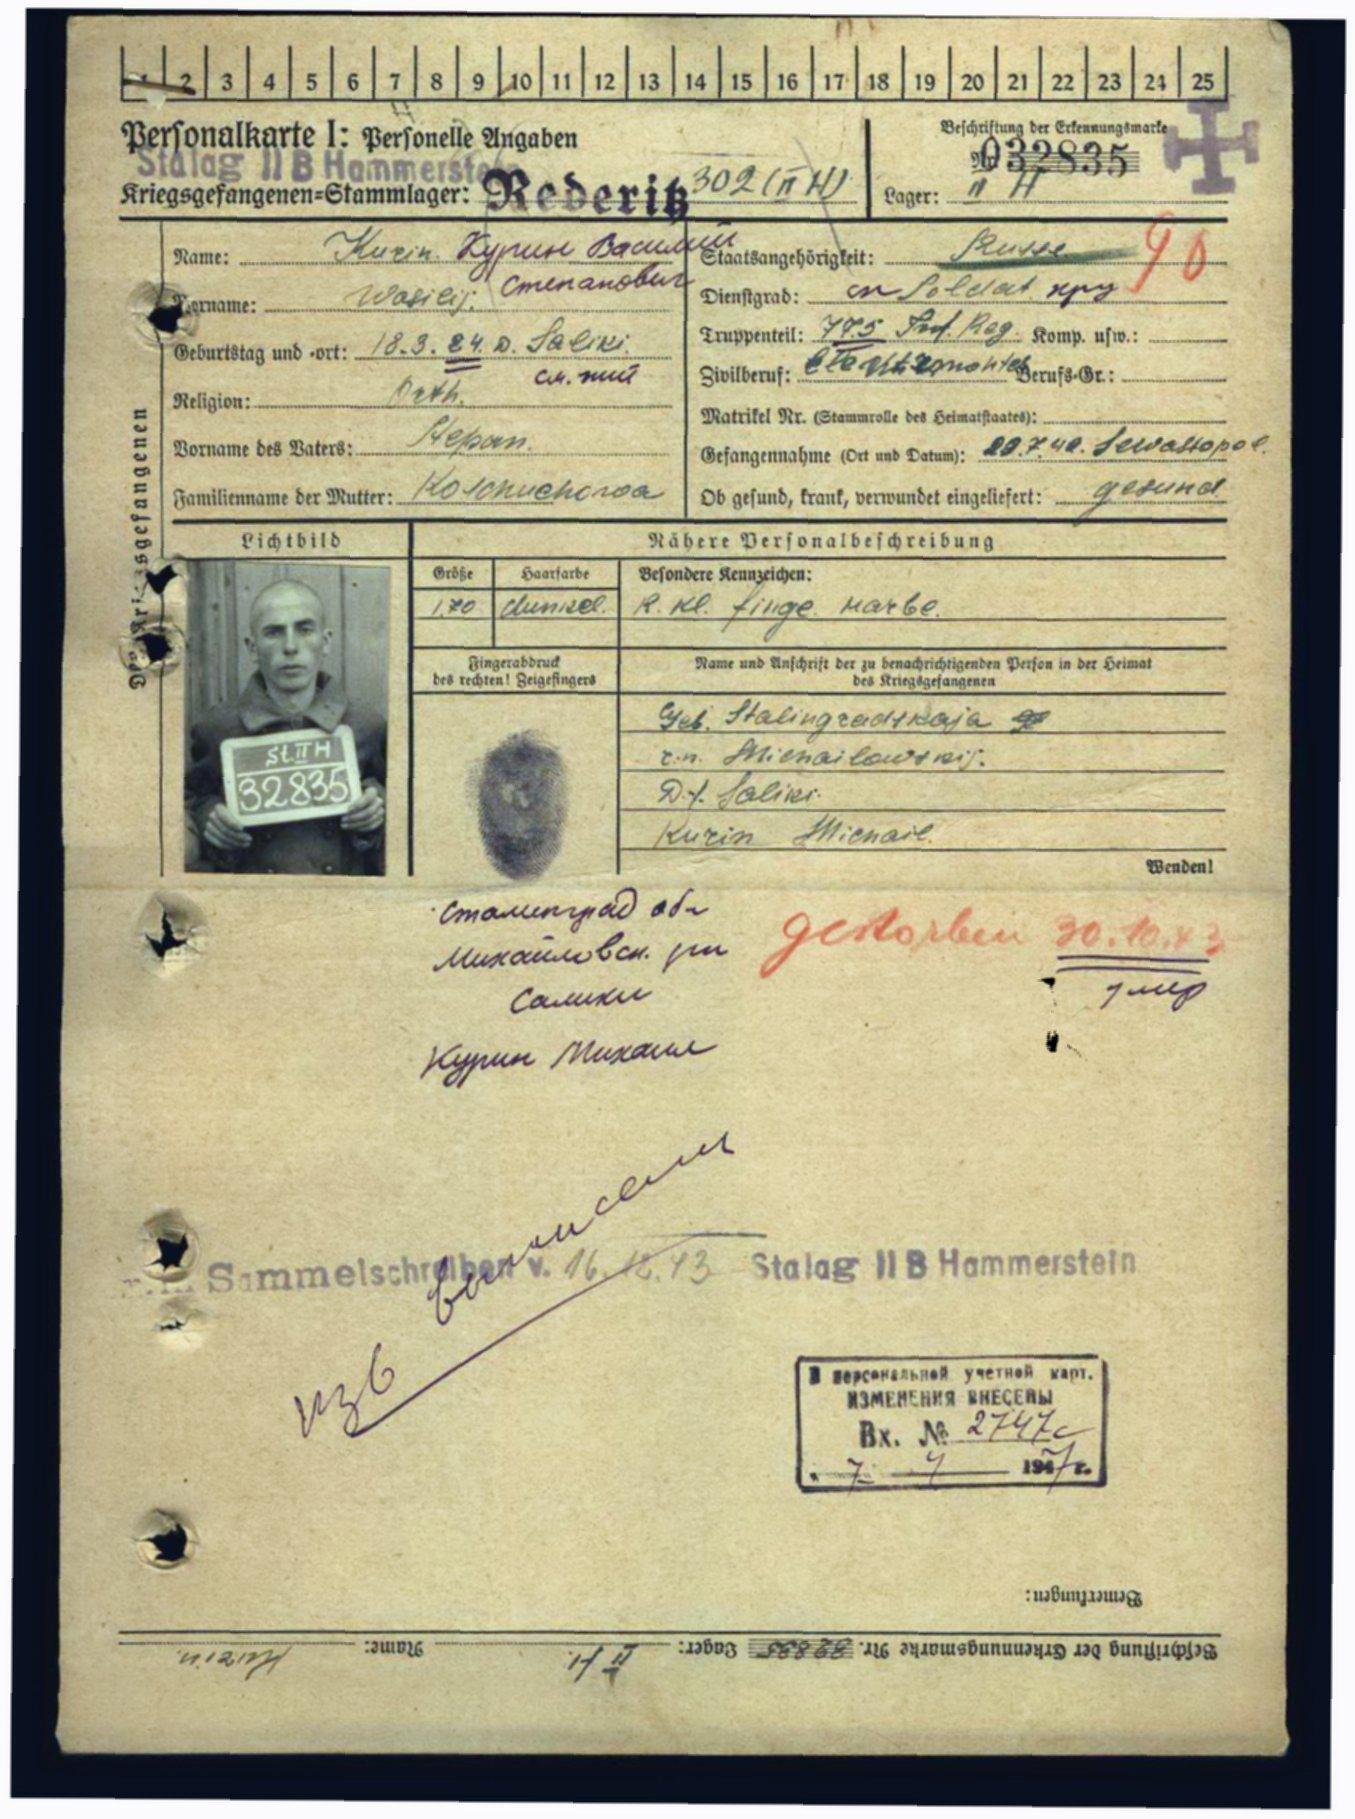 1 2 3 4 5 6 7 8 9 10 11 12 13 14 15 16 17 18 19 20 21 22 23 24 25
Personalkarte I: Personelle Angaben
Beschriftung der Erkennungsmarke
Stalag II B Hammerstein
Nr. 032835
Kriegsgefangenen-Stammlager: Rederitz 302 (II H)
Lager: II H
Des Kriegsgefangenen
Name: Kurin. Курин Василий
Степанович
Vorname: Wasilij.
Geburtstag und -ort: 18.3.24. D. Saliki.
Religion: Orth.
Vorname des Vaters: Stepan.
Familienname der Mutter: Koschuchowa
Staatsangehörigkeit: Russe
90
Dienstgrad: Soldat
Truppenteil: 775 Inf. Reg. Komp. usw.:
Zivilberuf: Berufs-Gr.:
Matrikel Nr. (Stammrolle des Heimatstaates):
Gefangennahme (Ort und Datum): 20.7.42. Sewastopol.
Ob gesund, krank, verwundet eingeliefert: gesund
Lichtbild
Nähere Personalbeschreibung
Größe Haarfarbe Besondere Kennzeichen:
1.70 dunkel. R. kl. finge. Narbe.
Fingerabdruck
des rechten! Zeigefingers
Name und Anschrift der zu benachrichtigenden Person in der Heimat
des Kriegsgefangenen
Geb. Stalingradskaja
r.n. Michailowskij.
D.f. Saliki.
Kurin Michail.
St. II H
32835
Wenden!
Сталинград обл
Михайловск. рн
Салики
Курин Михаил
gestorben 30.10.43
умер
Sammelschreiben v. 16.12.43 Stalag II B Hammerstein
изв
В персональной учетной карт.
ИЗМЕНЕНИЯ ВНЕСЕНЫ
Вх. № 2747с
7 4 1947 г.
Bemerkungen:
Beschriftung der Erkennungsmarke Nr. 32835 Lager: II H. Name: Kurin.